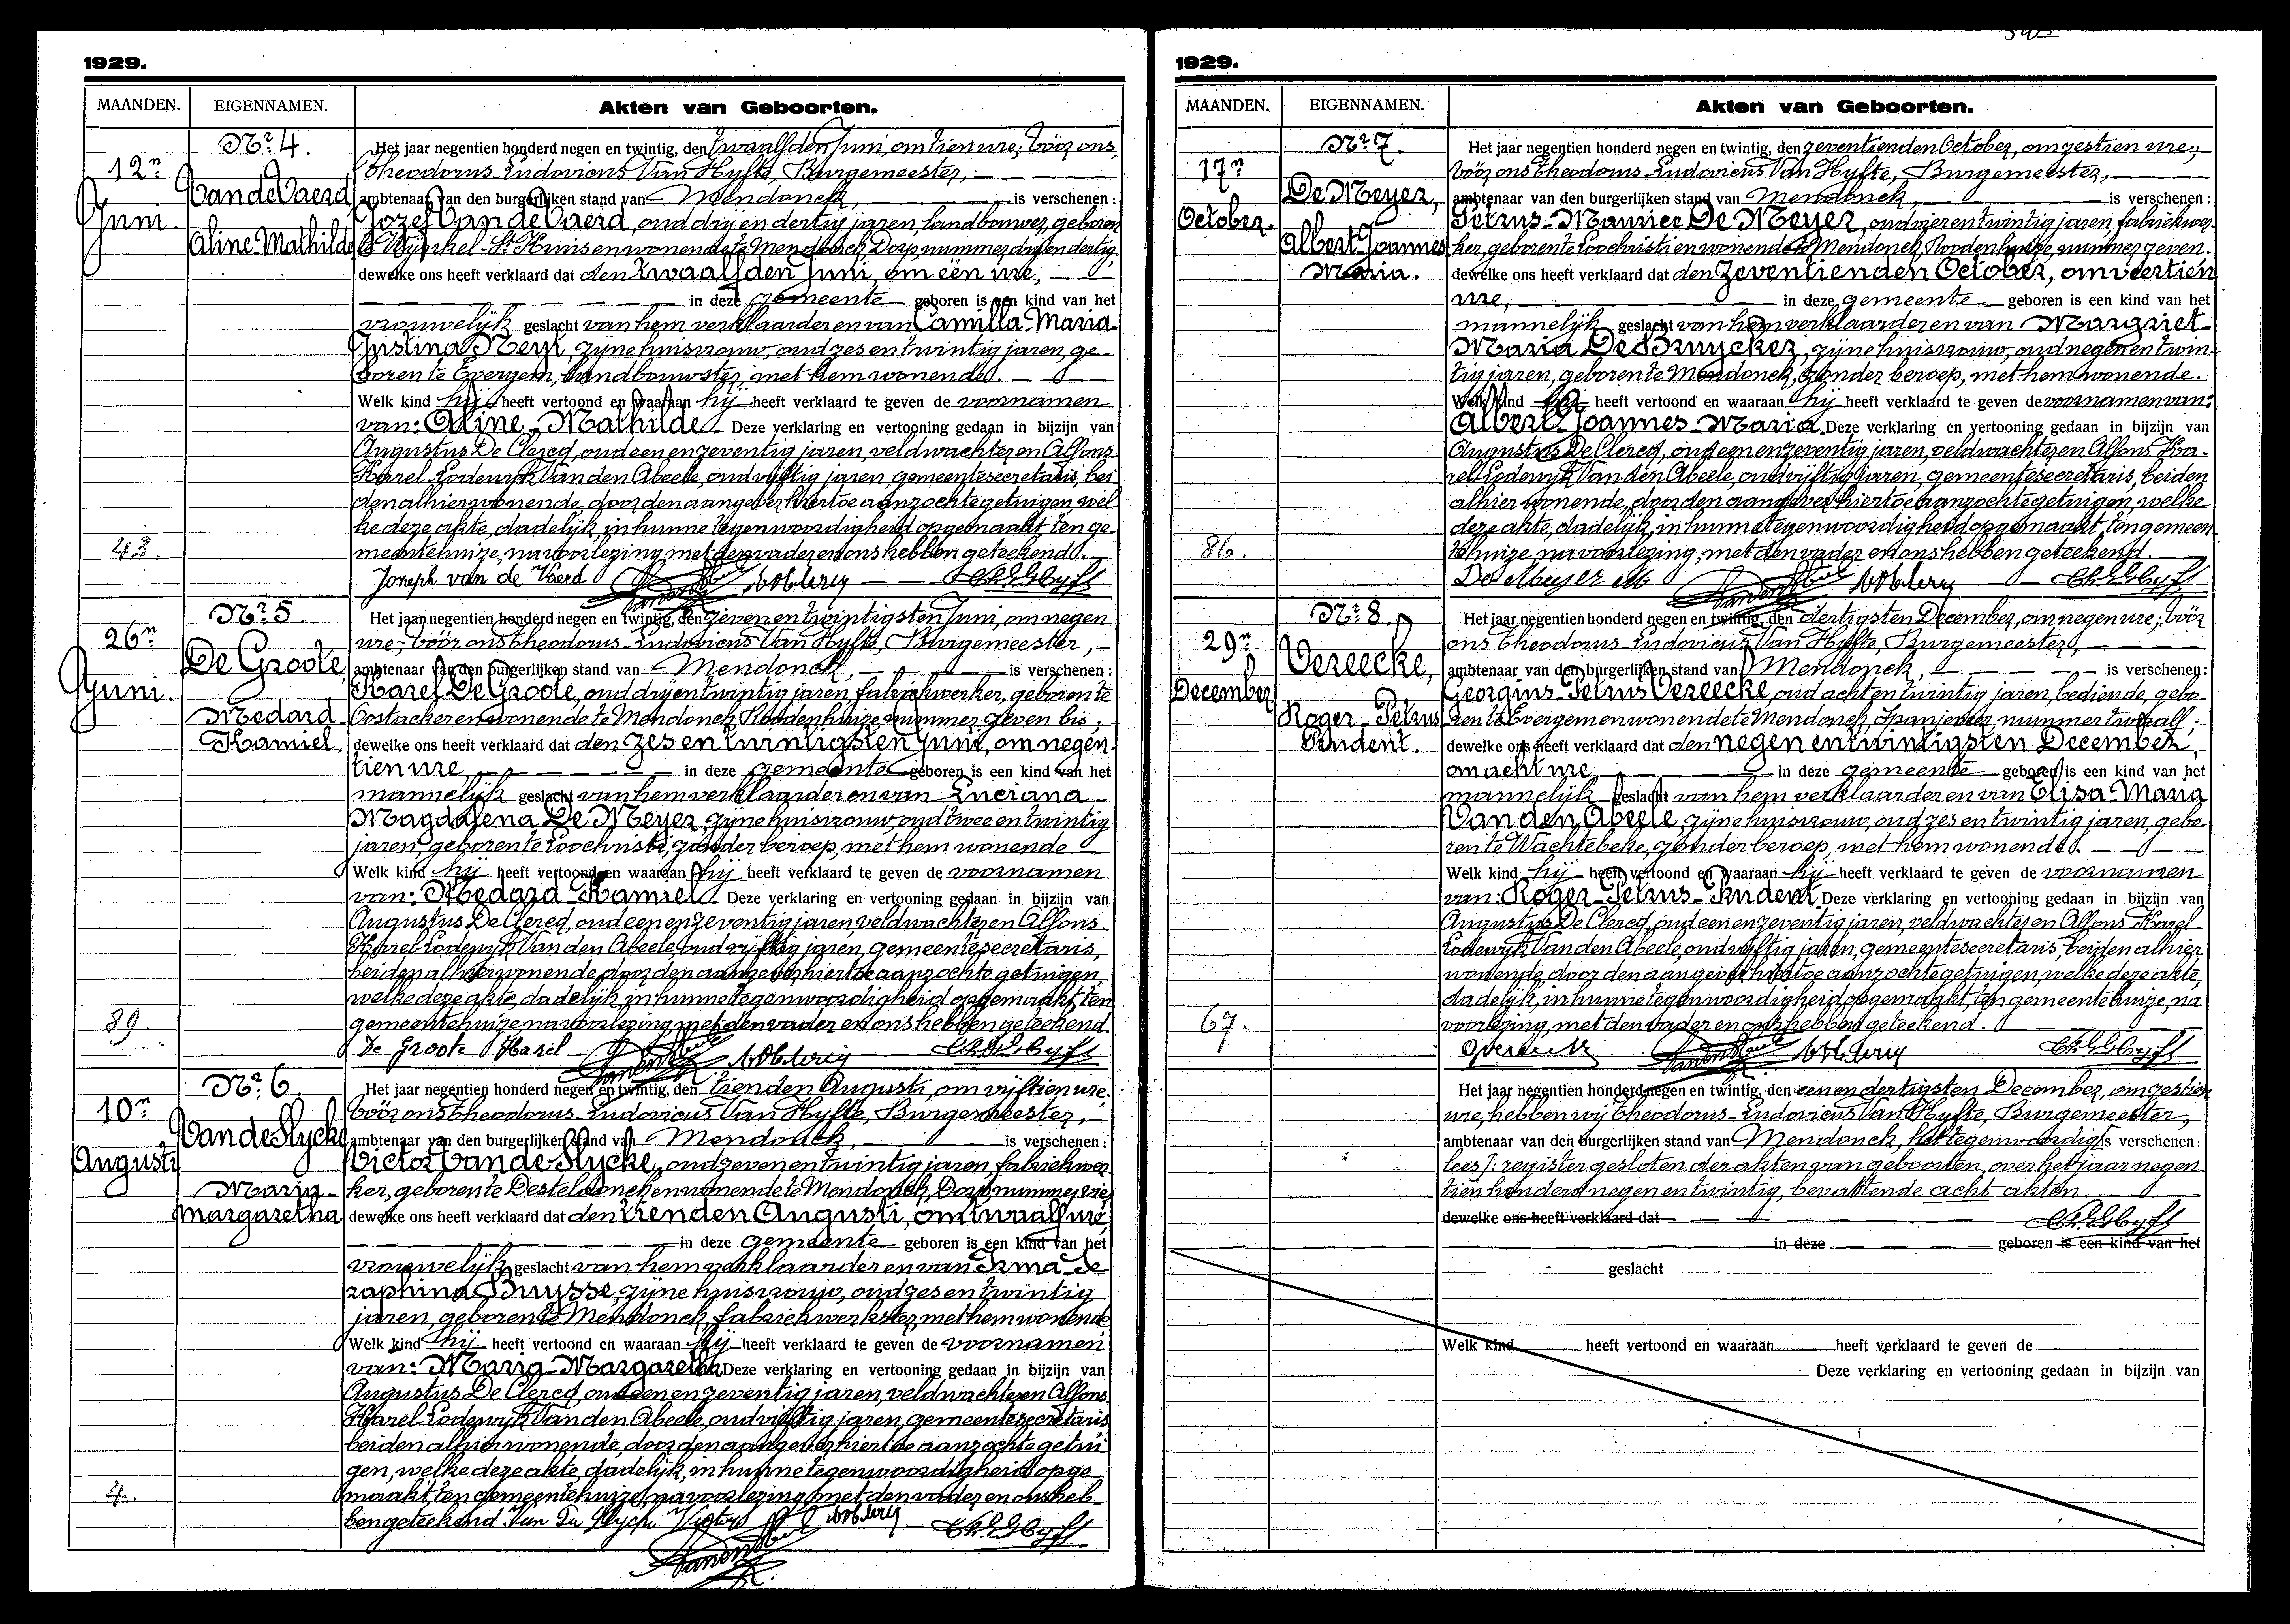 1929.
MAANDEN.
EIGENNAMEN.
Akten van Geboorten.
Nr. 4.
12n
Juni.
Van de Vaerd
Aline-Mathilde
43.
Het jaar negentien honderd negen en twintig, den twaalfden Juni, om tien ure, vöör ons,
Theodorus-Ludovicus Van Hyfte, Burgemeester,
ambtenaar van den burgerlijken stand van Mendonck, is verschenen:
Jozef Van de Vaerd, oud drij en dertig jaren, landbouwer, geboren
te Wynkel-St Kruis en wonende te Mendonck, Dorp, nummer drij en dertig;
dewelke ons heeft verklaard dat den twaalfden Juni, om één ure,
in deze gemeente geboren is een kind van het
vrouwelijk geslacht van hem verklaarder en van Camilla-Maria-
Justina Neyt, zijne huisvrouw, oud zes en twintig jaren, ge-
boren te Evergem, landbouwster, met hem wonende.
Welk kind hij heeft vertoond en waaraan hij heeft verklaard te geven de voornamen
van: Aline-Mathilde. Deze verklaring en vertooning gedaan in bijzijn van
Augustus De Clercq, oud een en zeventig jaren, veldwachter en Alfons
Karel-Lodewijk Van den Abeele, oud vijftig jaren, gemeentesecretaris, bei
den alhier wonende, door den aangever hiertoe aanzochte getuigen, wel-
ke deze akte, dadelijk, in hunne tegenwoordigheid opgemaakt, ten ge-
meentehuize, na voorlezing met den vader en ons hebben geteekend.
Joseph van de Vaerd
Nr. 5.
26n
Juni.
De Groote,
Medard-
Kamiel.
89.
Het jaar negentien honderd negen en twintig, den zeven en twintigsten Juni, om negen
ure; vöör ons Theodorus-Ludovicus Van Hyfte, Burgemeester,
ambtenaar van den burgerlijken stand van Mendonck, is verschenen:
Karel De Groote, oud drij en twintig jaren, fabriekwerker, geboren te
Oostacker en wonende te Mendonck, Roodenhuize, nummer zeven bis;
dewelke ons heeft verklaard dat den zes en twintigsten Juni, om negen-
tien ure, in deze gemeente geboren is een kind van het
mannelijk geslacht van hem verklaarder en van Luciana-
Magdalena De Meyer, zijne huisvrouw, oud twee en twintig
jaren, geboren te Loochristi, zonder beroep, met hem wonende.
Welk kind hij heeft vertoond en waaraan hij heeft verklaard te geven de voornamen
van: Medard-Kamiel. Deze verklaring en vertooning gedaan in bijzijn van
Augustus De Clercq, oud een en zeventig jaren, veldwachter en Alfons-
Karel-Lodewijk Van den Abeele, oud vijftig jaren, gemeentesecretaris,
beiden alhier wonende, door den aangever hiertoe aanzochte getuigen,
welke deze akte, dadelijk, in hunne tegenwoordigheid opgemaakt, ten
gemeentehuize, na voorlezing, met den vader en ons hebben geteekend.
De Groote Karel
Nr. 6.
10n
Augusti
Van de Slycke
Maria-
Margaretha
4.
Het jaar negentien honderd negen en twintig, den tienden Augusti, om vijftien ure,
vöör ons Theodorus-Ludovicus Van Hyfte, Burgemeester,
ambtenaar van den burgerlijken stand van Mendonck, is verschenen:
Victor Van de Slycke, oud zeven en twintig jaren, fabriekwer-
ker, geboren te Desteldonck en wonende te Mendonck, Dorp, nummer vier
dewelke ons heeft verklaard dat den tienden Augusti, om twaalf ure,
in deze gemeente geboren is een kind van het
vrouwelijk geslacht van hem verklaarder en van Irma-Se-
raphina Buysse, zijne huisvrouw, oud zes en twintig
jaren, geboren te Mendonck, fabriekwerkster, met hem wonende
Welk kind hij heeft vertoond en waaraan hij heeft verklaard te geven de voornamen
van: Maria-Margaretha. Deze verklaring en vertooning gedaan in bijzijn van
Augustus De Clercq, oud een en zeventig jaren, veldwachter en Alfons
Karel-Lodewijk Van den Abeele, oud vijftig jaren, gemeentesecretaris
beiden alhier wonende, door den aangever hiertoe aanzochte getui
gen, welke deze akte, dadelijk, in hunne tegenwoordigheid opge-
maakt, ten gemeentehuize, na voorlezing, met den vader en ons heb-
ben geteekend. Van De Slycke Victor
1929.
MAANDEN.
EIGENNAMEN.
Akten van Geboorten.
Nr. 7.
17n
October.
De Meyer,
Albert-Joannes
Maria.
86.
Het jaar negentien honderd negen en twintig, den zeventienden October, om zestien ure,
vöör ons Theodorus-Ludovicus Van Hyfte, Burgemeester,
ambtenaar van den burgerlijken stand van Mendonck, is verschenen:
Petrus-Maurice De Meyer, oud vier en twintig jaren, fabriekwer-
ker, geboren te Loochristi en wonende te Mendonck, Roodenhuize, nummer zeven.
dewelke ons heeft verklaard dat den zeventienden October, om veertien
ure, in deze gemeente geboren is een kind van het
mannelijk geslacht van hem verklaarder en van Margriet-
Maria De Bruycker, zijne huisvrouw, oud negen en twin-
tig jaren, geboren te Mendonck, zonder beroep, met hem wonende.
Welk kind hij heeft vertoond en waaraan hij heeft verklaard te geven de voornamen van:
Albert-Joannes-Maria. Deze verklaring en vertooning gedaan in bijzijn van
Augustus De Clercq, oud een en zeventig jaren, veldwachter en Alfons Ka-
rel-Lodewijk Van den Abeele, oud vijftig jaren, gemeentesecretaris, beiden
alhier wonende, door den aangever hiertoe aanzochte getuigen, welke
deze akte, dadelijk, in hunne tegenwoordigheid opgemaakt, ten gemeen-
tehuize, na voorlezing, met den vader en ons hebben geteekend.
De Meyer
Nr. 8.
29n
December
Vereecke,
Roger-Petrus
Prudent.
67.
Het jaar negentien honderd negen en twintig, den dertigsten December, om negen ure; vöör
ons Theodorus-Ludovicus Van Hyfte, Burgemeester,
ambtenaar van den burgerlijken stand van Mendonck, is verschenen:
Georgius-Petrus Vereecke, oud acht en twintig jaren, bediende, gebo-
ren te Evergem en wonende te Mendonck, Spanjeveer nummer twaalf;
dewelke ons heeft verklaard dat den negen en twintigsten December,
om acht ure in deze gemeente geboren is een kind van het
mannelijk geslacht van hem verklaarder en van Elisa-Maria
Van den Abeele, zijne huisvrouw, oud zes en twintig jaren, gebo-
ren te Wachtebeke, zonder beroep, met hem wonende.
Welk kind hij heeft vertoond en waaraan hij heeft verklaard te geven de voornamen
van: Roger-Petrus-Prudent. Deze verklaring en vertooning gedaan in bijzijn van
Augustus De Clercq, oud een en zeventig jaren, veldwachter en Alfons Karel-
Lodewijk Van den Abeele, oud vijftig jaren, gemeentesecretaris, beiden alhier
wonende, door den aangever hiertoe aanzochte getuigen, welke deze akte,
dadelijk, in hunne tegenwoordigheid opgemaakt, ten gemeentehuize, na
voorlezing, met den vader en ons hebben geteekend.
Het jaar negentien honderd negen en twintig, den een en dertigsten December, om zestien
ure, hebben wij Theodorus-Ludovicus Van Hyfte, Burgemeester,
ambtenaar van den burgerlijken stand van Mendonck, het tegenwoordig is verschenen:
lees ]: register gesloten der akten van geboorten, over het jaar negen-
tien honderd negen en twintig, bevattende acht akten
dewelke ons heeft verklaard dat
in deze geboren is een kind van het
geslacht
Welk kind heeft vertoond en waaraan heeft verklaard te geven de
Deze verklaring en vertooning gedaan in bijzijn van